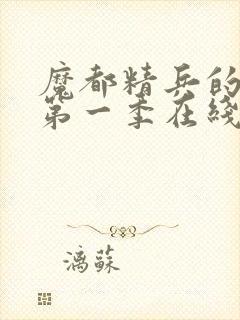 魔都精兵的
第一季在线
漓苏